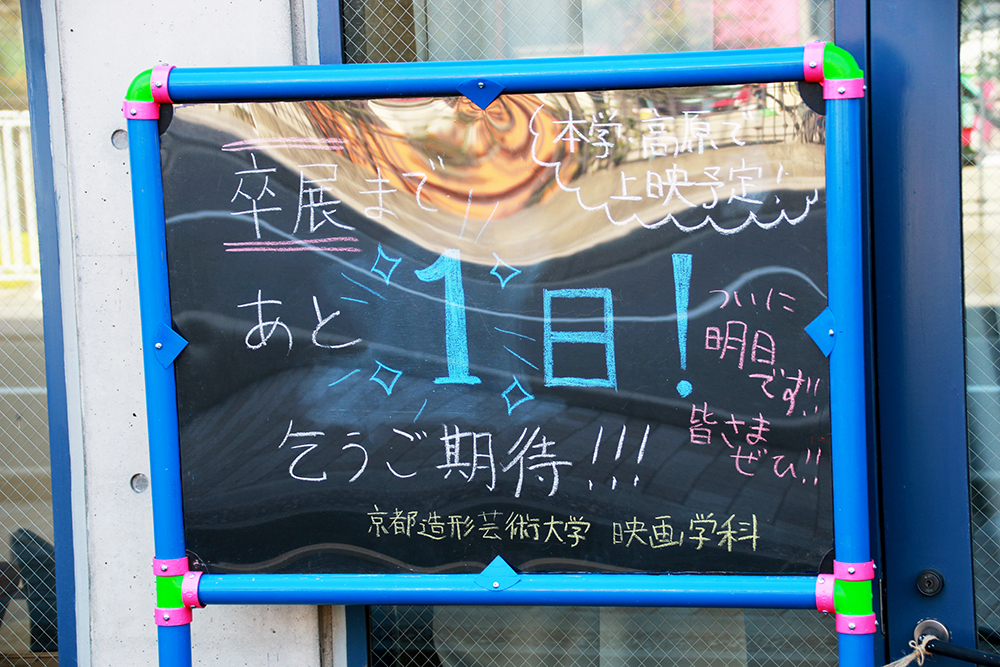 卒展まで
本学・高原で
上映予定!
あと1日!
ついに
明日
です!!
皆さま
ぜひ!!
乞うご期待!!!
京都造形芸術大学 映画学科